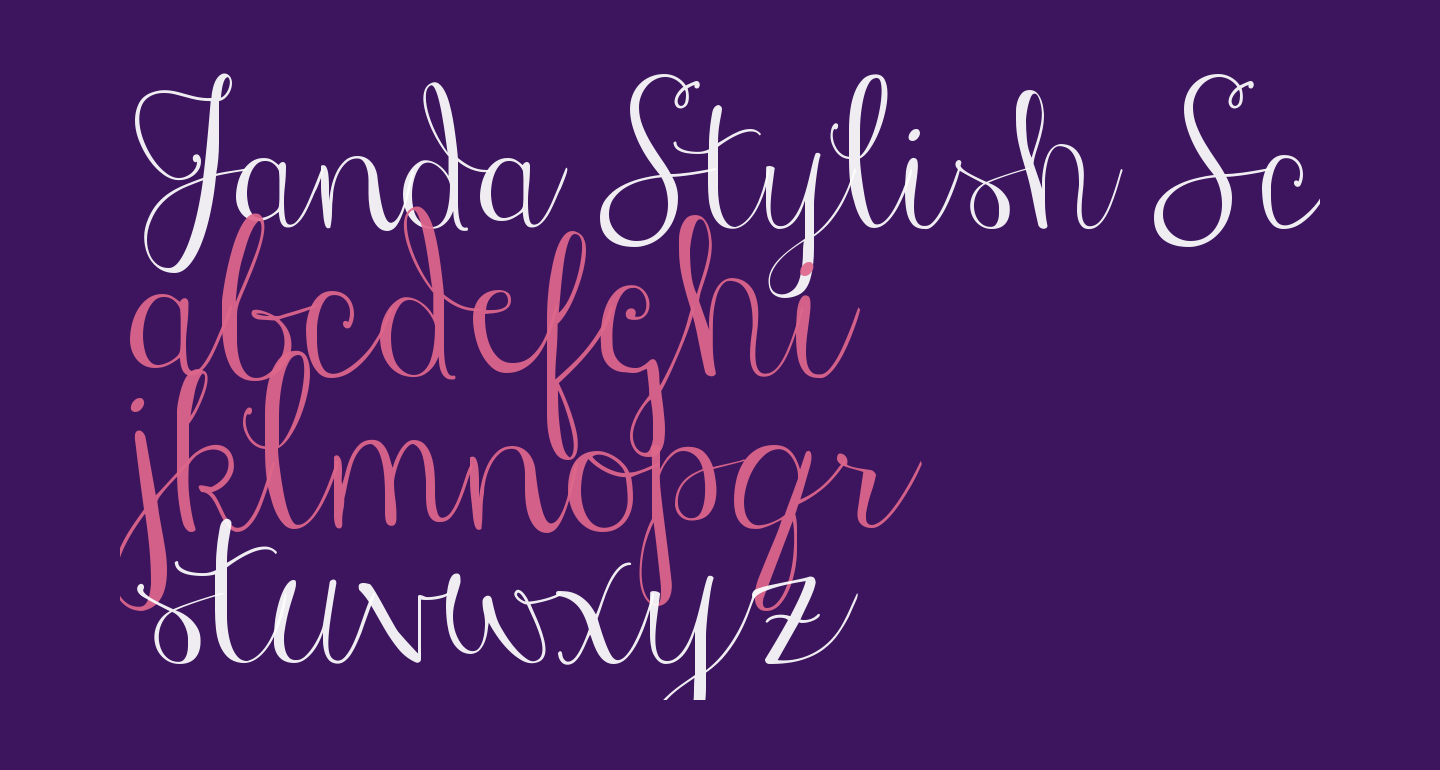 Janda Stylish Sc
abcdefghi
jklmnopqr
stuvwxyz